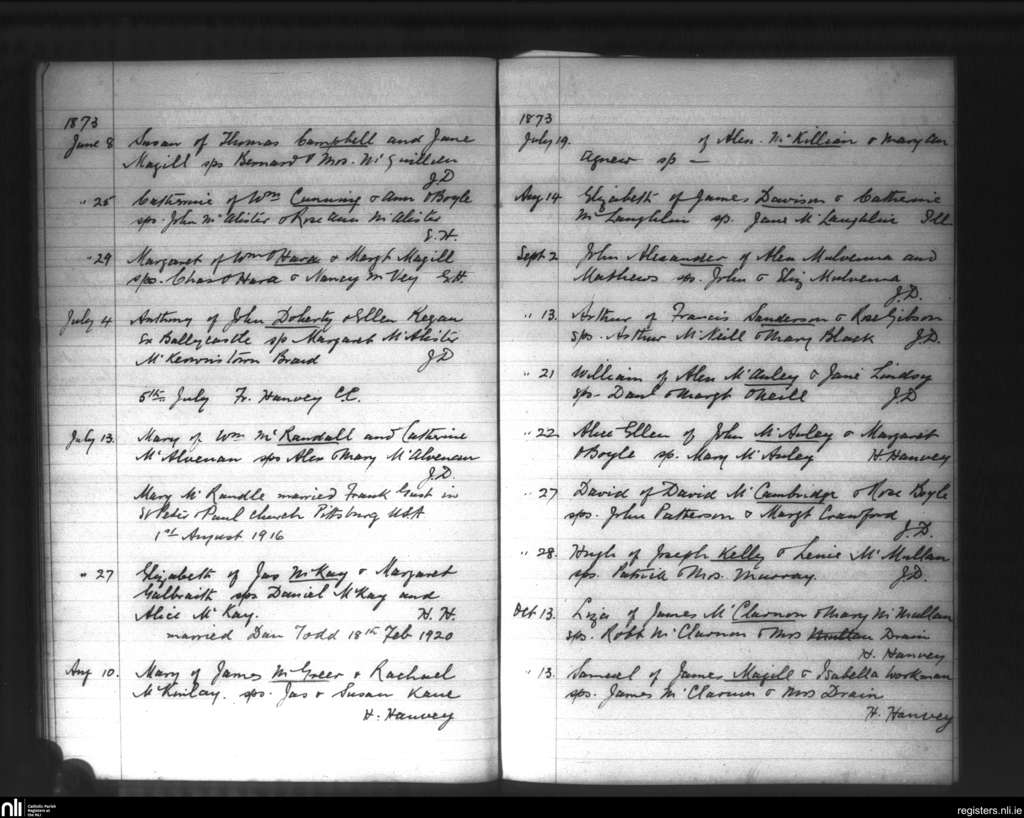 1873
June 8 Susan of Thomas Campbell and Jane
Magill sps Bernard & Mrs. McQuillen
J.D
" 25 Catherine of Wm Cunning & Ann O'Boyle
sps. John McAlister & Rose Ann McAlister
" 29 Margaret of Wm O'Hara & Margt Magill
sps. Chas O'Hara & Nancy McVey
July 4 Anthony of John Doherty & Ellen Regan
Ballycastle sp Margaret McAlister
McKeownstown Braid J.D
5th July Fr. Hanvey C.C.
July 13. Mary of Wm McRandall and Catherine
McAlvenan sps Alex & Mary McAlvenan
J.D.
Mary McRandle married Frank Gust in
St Peter & Paul church Pittsburg USA
1st August 1916
" 27 Elizabeth of Jas McKay & Margaret
Galbraith sps Daniel McKay and
Alice McKay. H. H.
married Dan Todd 18th Feb 1920
Aug 10. Mary of James McGreer & Rachael
McKinlay. sps. Jas & Susan Kane
H. Hanvey
1873
July 19. of Alex. McKillian & Mary An
Agnew sp —
Aug 14 Elizabeth of James Davison & Catherine
McLaughlin sp. Jane McLaughlin
Sept 2 John Alexander of Alex Mulvenna and
Mathews sp. John & Eliz Mulvenna
J.D.
" 13. Arthur of Francis Sanderson & Rose Gibson
sps. Arthur McNeill & Mary Black J.D.
" 21 William of Alex McAuley & Jane Lindsy
sps. Danl & Margt O'Neill J.D
" 22 Alice Ellen of John McAuley & Margaret
O'Boyle sp. Mary McAuley H. Hanvey
" 27 David of David McCambridge & Rose Boyle
sps. John Patterson & Margt Crawford
J.D.
" 28. Hugh of Joseph Kelly & Lenie McMullan
sps. Patrick & Mrs. Murray. J.D.
Oct 13. Liza of James McClarnon & Mary McMullan
sps. Robt McClarnon & Mrs Mullan Drain
H. Hanvey
" 13. Samuel of James Magill & Isabella Workman
sps. James McClarnon & Mrs Drain
H. Hanvey
nli Catholic Parish
Registers at
the NLI
registers.nli.ie